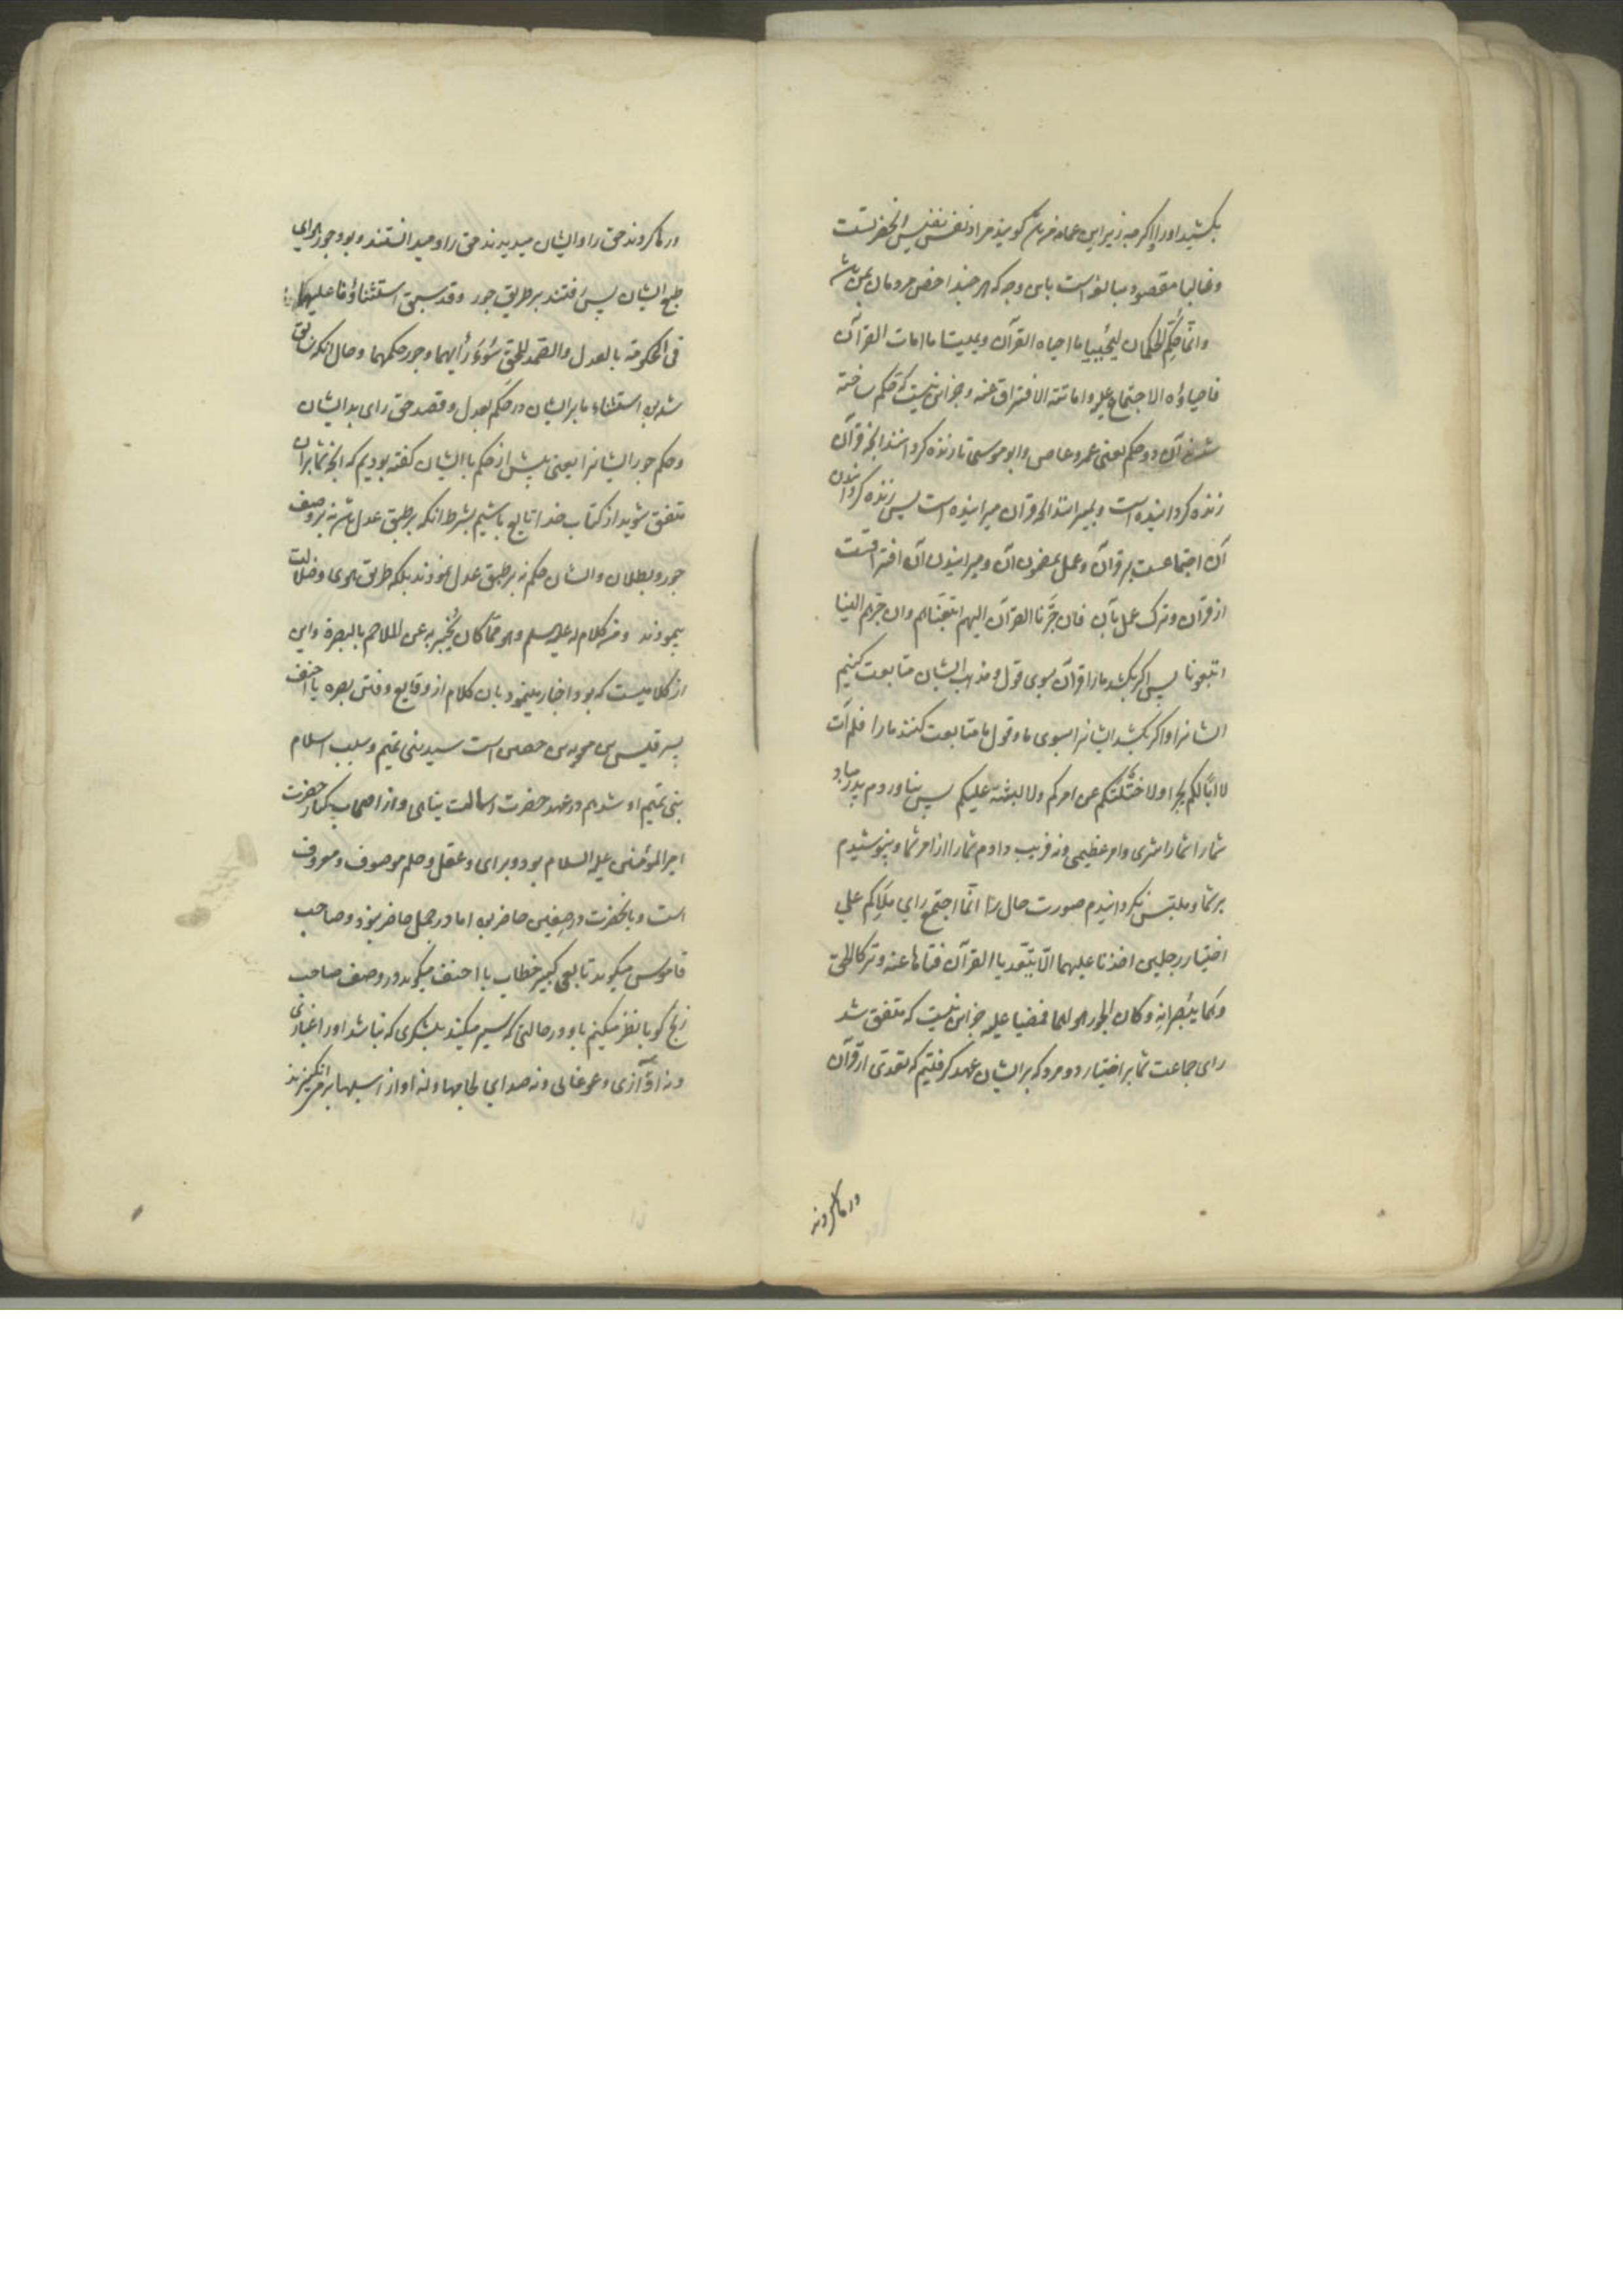 بکشید او را اگرچه زیر این عمامه من باشد گویند مراد نفس نفیس آنحضرتست
و غالبا مقصود مبالغه است باین وجه که هر چند اخص مردمان بمن باشد
و انّما حُکِّم الحکمان لیُحْیِیا ما احیاه القرآن و یمیتا ما امات القرآن
فاحیاؤه الاجتماع علیه و اماتته الافتراق عنه و جز این نیست که حکم ساخته
شدند آن دو حکم یعنی عمرو عاص و ابو موسی تا زنده گردانند آنچه قرآن
زنده گردانیده است و بمیرانند آنچه قرآن میرانیده است پس زنده گردانیدن
آن اجتماعست بر قرآن و عمل بمضمون آن و میرانیدن آن افتراقست
از قرآن و ترک عمل بآن فان جَرَّنا القرآن الیهم اتبعناهم و ان جرّهم الینا
اتبعونا پس اگر بکشد ما را قرآن بسوی قول و مذهب ایشان متابعت کنیم
ایشانرا و اگر بکشد ایشانرا بسوی ما و قول ما متابعت کنند ما را فلم آت
لا ابا لکم بجرا و لا ختلتکم عن امرکم و لا لبسته علیکم پس نیاوردم پدر مباد
شما را شما را شری و امر عظیمی و نه فریب دادم شما را از امر شما و نپوشیدم
بر شما و ملتبس نگردانیدم صورت حال را انّما اجتمع رای ملاکم علی
اختیار رجلین اخذنا علیهما الّا یتعدیا القرآن فتاها عنه و ترکا الحق
و هما یبصرانه و کان الجور هواهما فمضیا علیه جز این نیست که متفق شد
رای جماعت شما بر اختیار دو مرد که بر ایشان عهد گرفتیم که تعدی از قرآن
در
ور ها کردند حق را و ایشان میدیدند حق را و میدانستند و بود جور هوای
طبع ایشان پس رفتند بر طریق جور و قد سبق استثناؤنا علیهما
فی الحکومة بالعدل و الصمد للحق سُوءَ رأیهما و جور حکمهما و حال آنکه سابق
شد استثناء ما بر ایشان در حکم بعدل و قصد حق رای بد ایشان
و حکم جور ایشانرا یعنی پیش از حکم با ایشان گفته بودیم که آنچه شما بر آن
متفق شوید از کتاب خدا تابع باشیم بشرط آنکه بر طبق عدل باشد نه بر وصف
جور و بطلان و ایشان حکم نه بر طبق عدل نمودند بلکه طریق هوی و ضلالت
پیمودند و من کلام له علیه السلم و هو ممّا کان یُخْبِر به عن الملاحم بالبصرة و این
از کلامیست که بود اخبار مینمود بان کلام از وقایع و فتن بصره یا احنف
پسر قیس بن معویه بن حصین است سید بنی تمیم و سبب اسلام
بنی تمیم او شد در عهد حضرت رسالت پناهی و از اصحاب کبار حضرت
امیر المؤمنین علیه السلام بود و برای و عقل و حلم موصوف و معروف
است و با حضرت در صفین حاضر بود اما در جمل حاضر نبود و صاحب
قاموس میگوید تابعی کبیر خطاب با احنف میگوید در وصف صاحب
زنج گویا نظر میکنم باو در حالتی که سیر میکند بلشکری که نباشد او را غباری
و نه آوازی و غوغائی و نه صدای لجامها و نه آواز اسبها بر می‌انگیزند